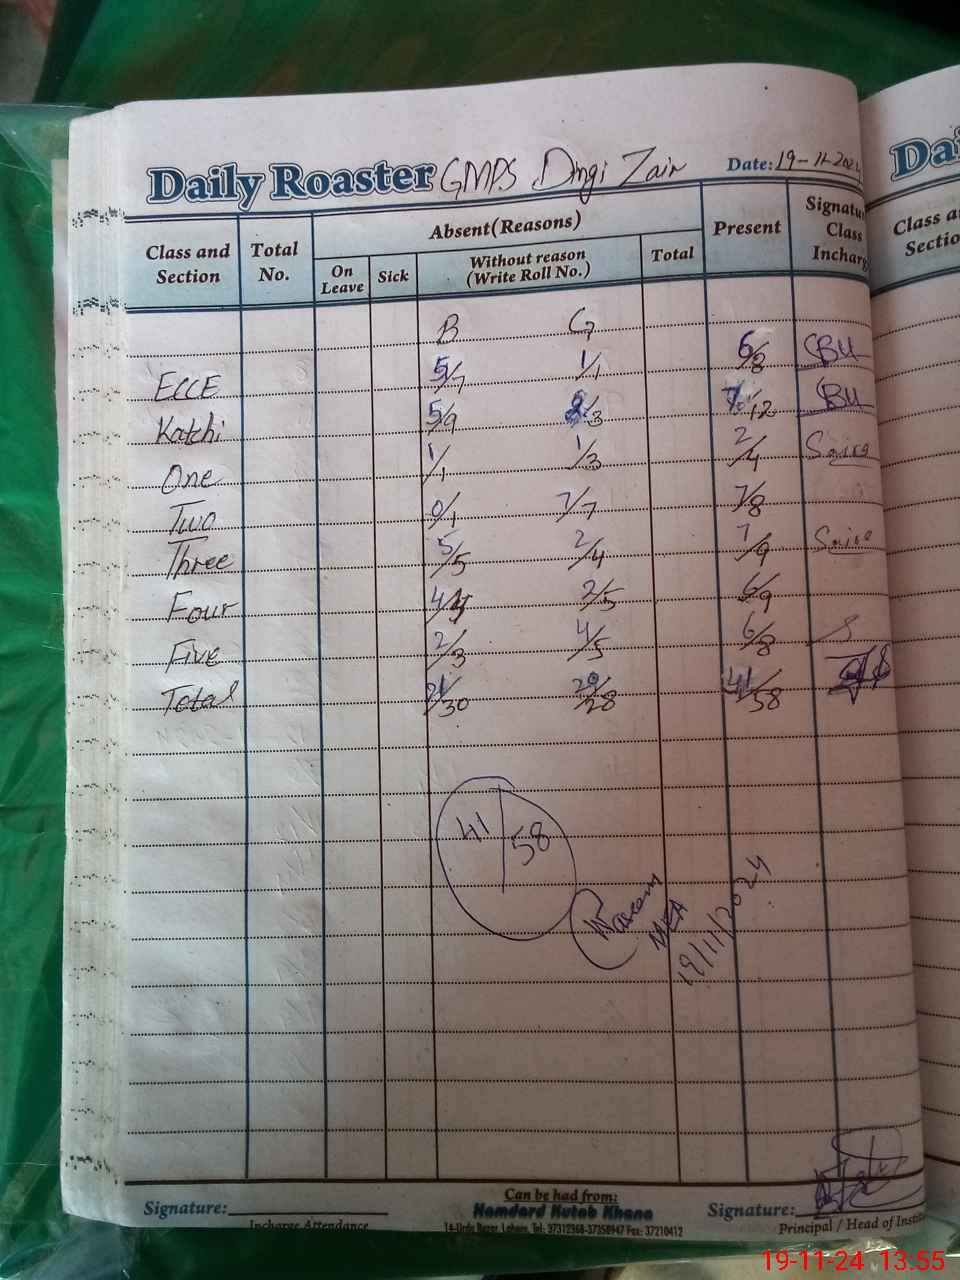 Daily Roaster GMPS Dingi Zain Date: 19-11-2024
Class and Section Total No. Absent (Reasons) Present Signature Class Incharg
On Leave Sick Without reason (Write Roll No.) Total
B G
ECCE 5/7 1/1 6/8 CBU
Katchi 5/9 2/3 7/12 CBU
One 1/1 1/3 2/4
Two 0/1 7/7 7/8
Three 5/5 2/4 7/9
Four 4/4 2/5 6/9
Five 2/3 4/5 6/8
Total 21/30 20/28 41/58
41/58
MEA
19/11/2024
Signature: Can be had from: Signature:
Incharge Attendance Hamdard Kutab Khana Principal / Head of Instit
14-Urdu Bazar, Lahore. Tel: 37312368-37358947 Fax: 37210412
Dai
Class a
Sectio
19-11-24 13:55